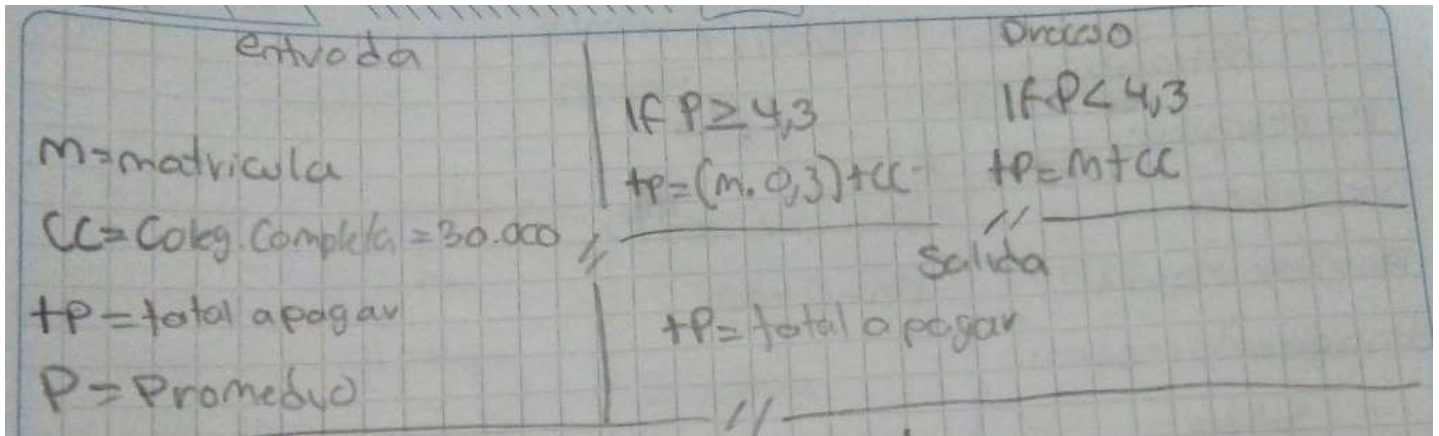 entrada
m=matricula
CC=Coleg. Completa = 30.000
tp=total a pagar
P=Promedio
Proceso
If P≥4,3
tp=(m.0,3)+CC
If P<4,3
tp=m+CC
Salida
tp=total a pagar